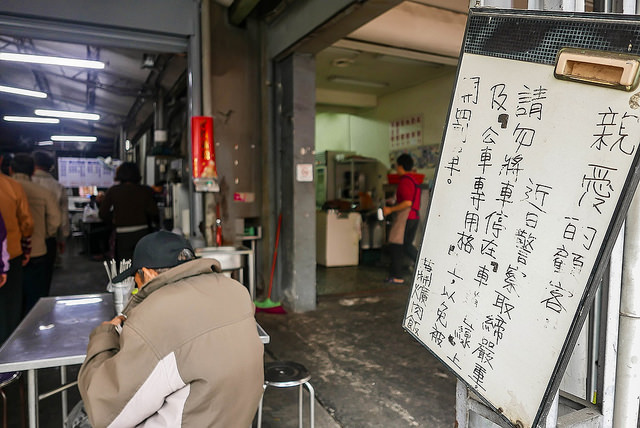 親愛的顧客
近日警察取締嚴重
請勿將車停在車線上
及公車專用格,以免被
開罰単。
爌肉飯